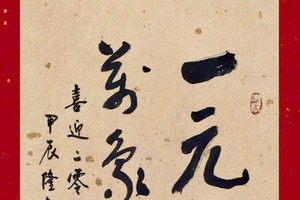 一元
萬象
喜迎二零
甲辰隆